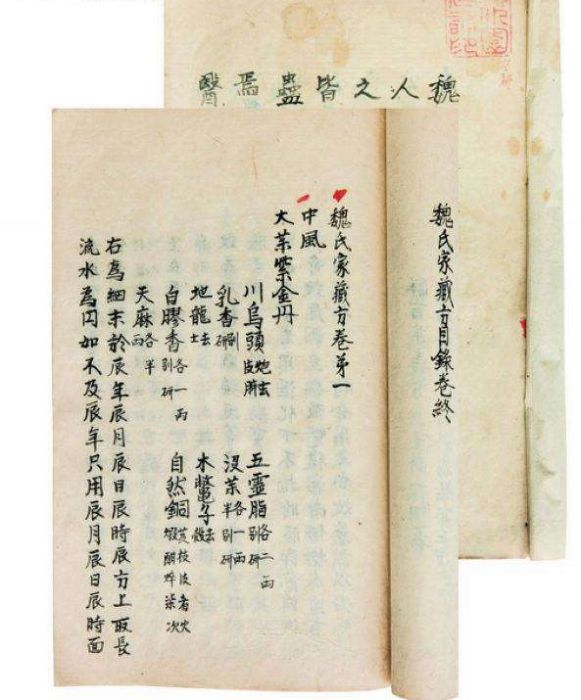 魏
人
之
皆
蠱
焉
醫
魏氏家藏方目錄卷終
魏氏家藏方卷第一
中風
大藥紫金丹
川烏頭炮去皮臍 五靈脂各二兩別研
乳香別研 沒藥各一兩半別研
地龍去土 木鼈子去殼
白膠香各一兩別研 自然銅者火煅醋淬柒次
天麻各半兩
右為細末於辰年辰月辰日辰時辰方上取長
流水為圓如不及辰年只用辰月辰日辰時面